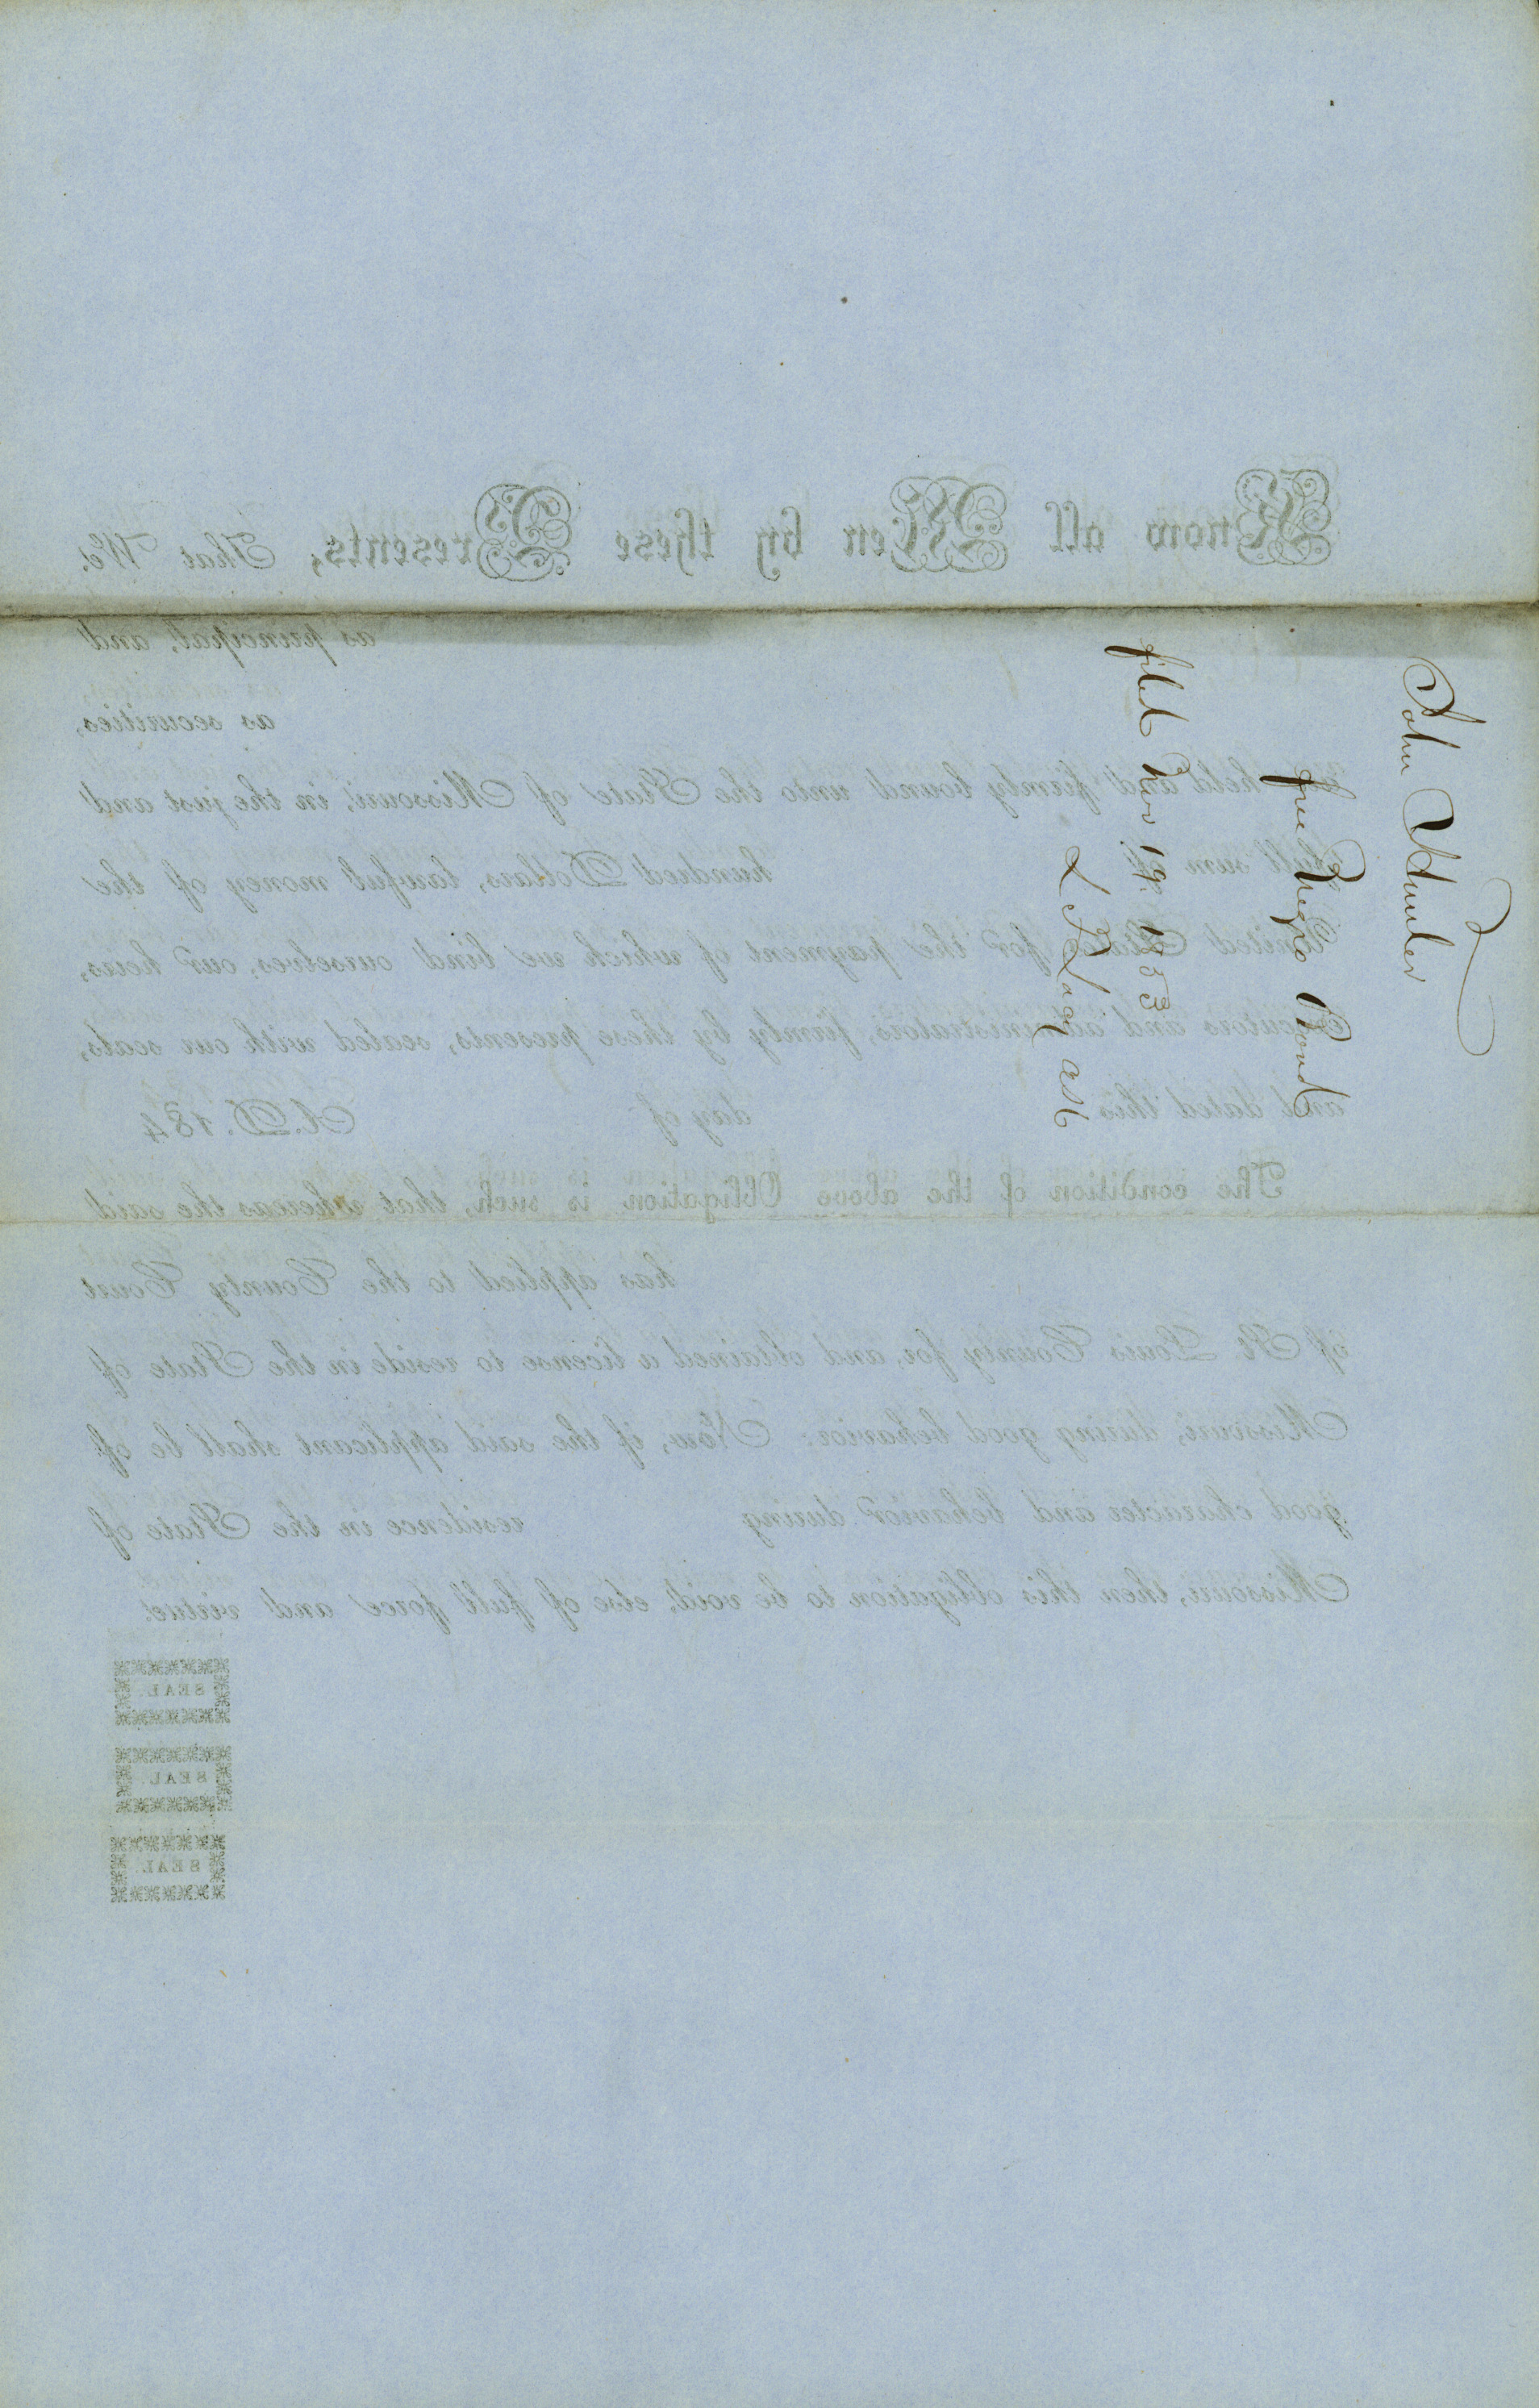 John
free Negro Bond
filed Nov 19. 1853
Know all Men by these Presents, That We,
as principal, and
as securities,
held and firmly bound unto the State of Missouri, in the just and
full sum of hundred Dollars, lawful money of the
United States for the payment of which we bind ourselves, our heirs,
executors and administrators, firmly by these presents, sealed with our seals,
and dated this day of A. D. 184
The condition of the above Obligation is such, that whereas the said
has applied to the County Court
of St. Louis County for, and obtained a license to reside in the State of
Missouri, during good behavior: Now, if the said applicant shall be of
good character and behavior during residence in the State of
Missouri, then this obligation to be void, else of full force and virtue.
SEAL.
SEAL.
SEAL.